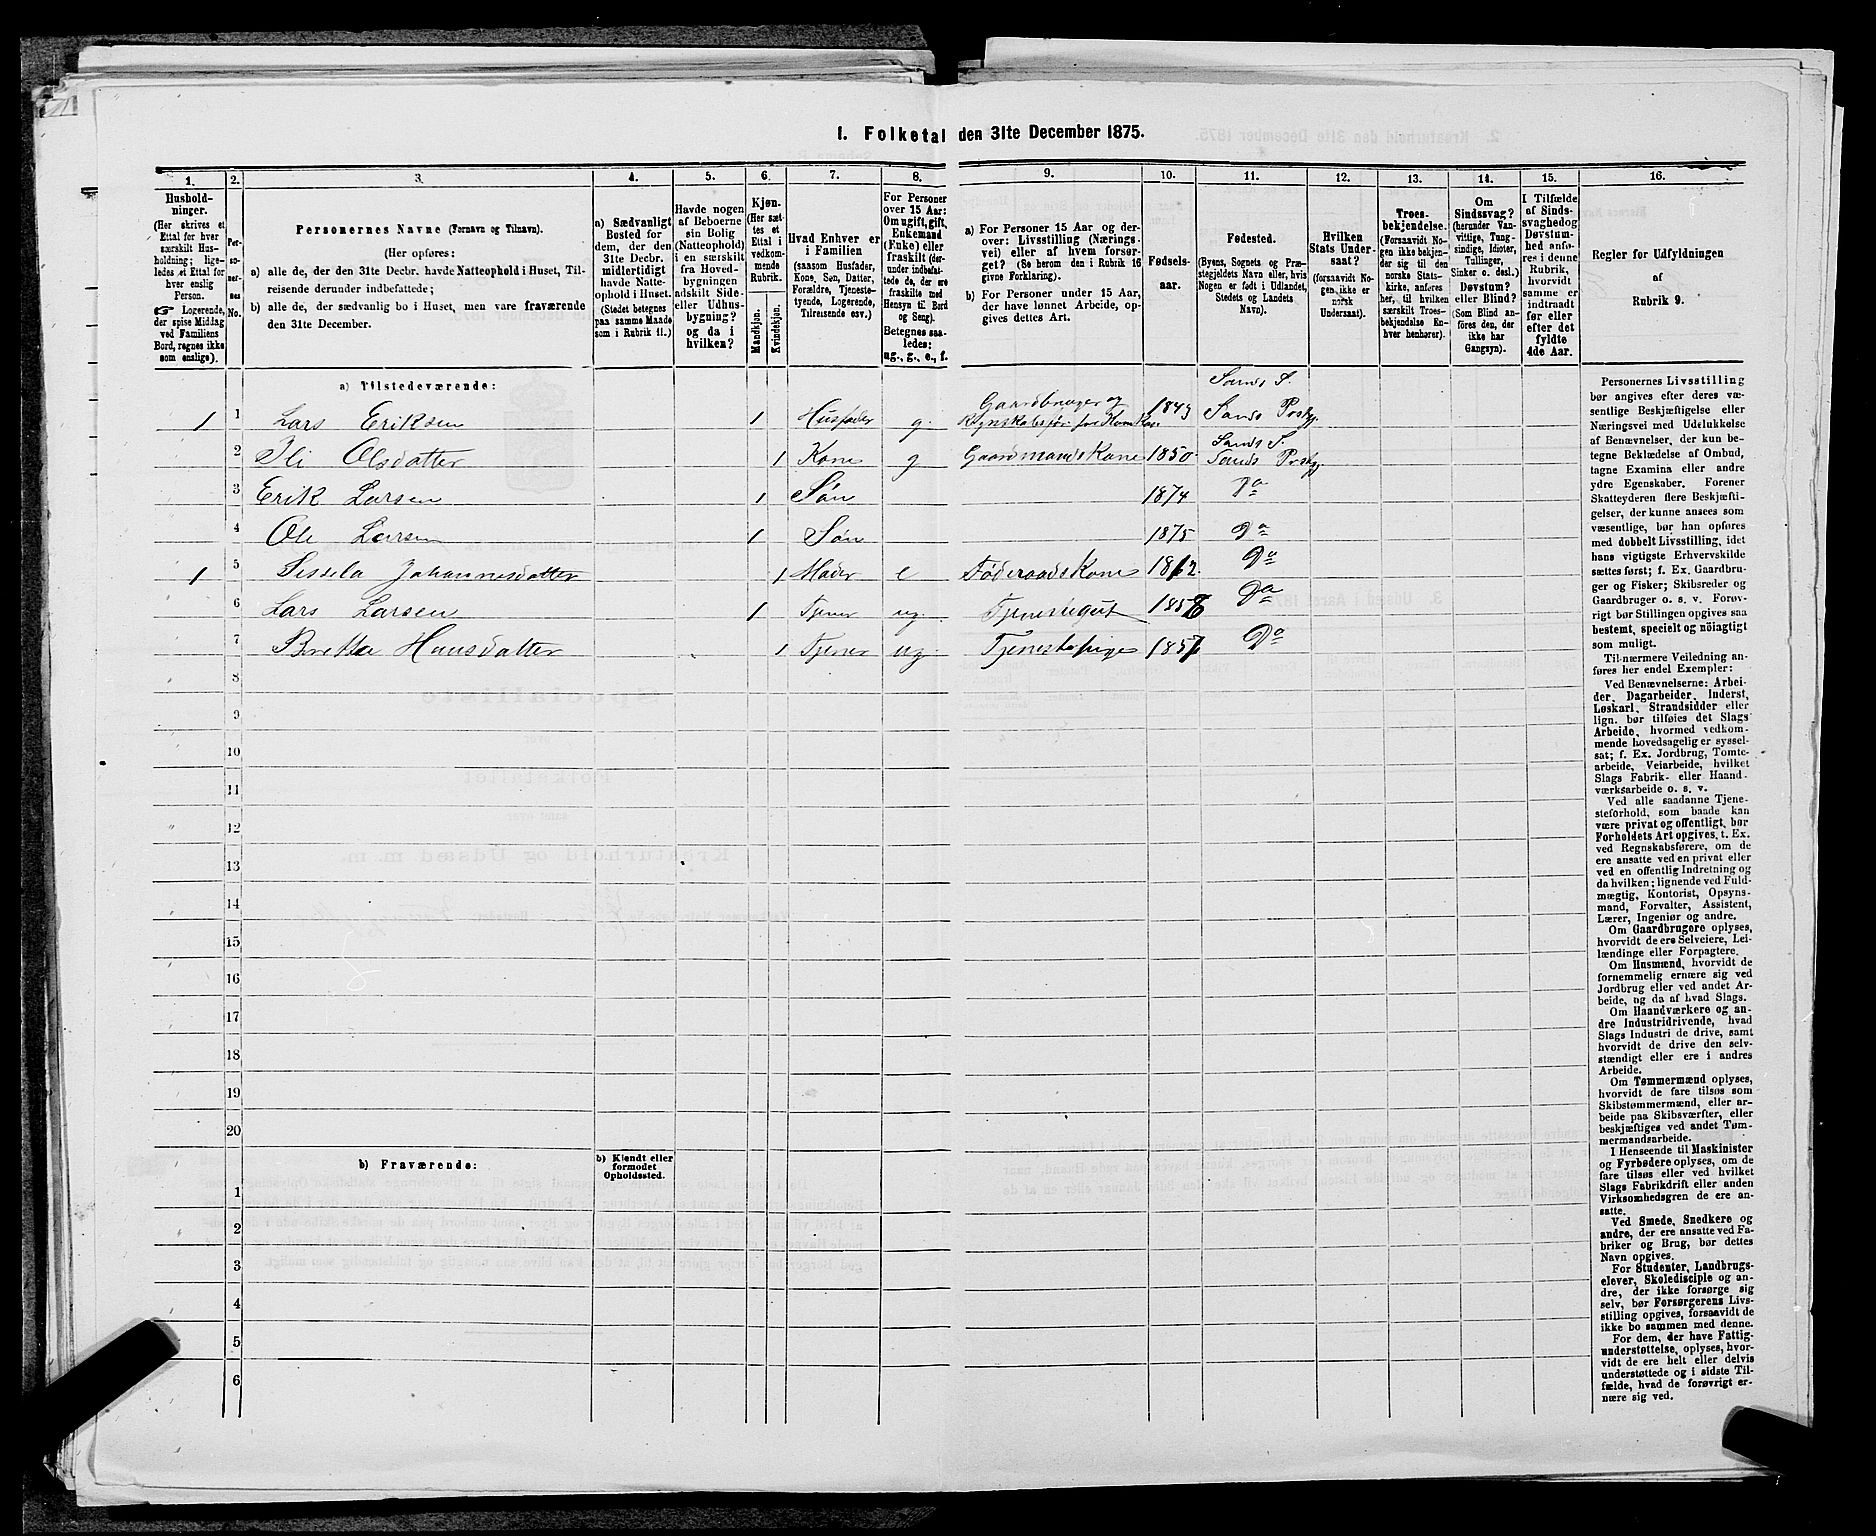 1. Folketal den 31te December 1875.
1.
Hushold-
ninger.
(Her skrives et
Ettal for hver
særskilt Hus-
holdning; lige-
ledes et Ettal for
hver enslig
Person.
☞ Logerende,
der spise Middag
ved Familiens
Bord, regnes ikke
som enslige).
2.
Per-
soner-
nes
No.
3.
Personernes Navne (Fornavn og Tilnavn).
(Her opføres:
a) alle de, der den 31te Decbr. havde Natteophold i Huset, Til-
reisende derunder indbefattede;
b) alle de, der sædvanlig bo i Huset, men vare fraværende
den 31te December.
4.
a) Sædvanligt
Bosted for
dem, der den
31te Decbr.
midlertidigt
havde Natte-
ophold i Huset.
(Stedet betegnes
paa samme Maade
som i Rubrik 11.)
5.
Havde nogen
af Beboerne
sin Bolig
(Natteophold)
i en særskilt
fra Hoved-
bygningen
adskilt Side-
eller Udhus-
bygning?
og da i
hvilken?
6.
Kjøn.
(Her sæt-
tes et
Ettal i
vedkom-
mende
Rubrik.
Mandkjøn.
Kvindekjøn.
7.
Hvad Enhver er
i Familien
(saasom Husfader,
Kone, Søn, Datter,
Forældre, Tjeneste-
tyende, Logerende,
Tilreisende osv.)
8.
For Personer
over 15 Aar:
Om ugift, gift,
Enkemand
(Enke) eller
fraskilt (der-
under indbefat-
tede de, der ere
fraskilte med
Hensyn til Bord
og Seng).
Betegnes saa-
ledes:
ug., g., e., f.
9.
a) For Personer 15 Aar og der-
over: Livsstilling (Nærings-
vei) eller af hvem forsør-
get? (Se herom den i Rubrik 16
givne Forklaring).
b) For Personer under 15 Aar,
der have lønnet Arbeide, op-
gives dettes Art.
10.
Fødsels-
aar.
11.
Fødested.
(Byens, Sognets og Præ-
stegjeldets Navn eller, hvis
Nogen er født i Udlandet,
Stedets og Landets
Navn).
12.
Hvilken
Stats Under-
saat?
(forsaavidt No-
gen ikke er
norsk
Undersaat).
13.
Troes-
bekjendelse.
(Forsaavidt No-
gen ikke bekjen-
der sig til den
norske Stats-
kirke, anføres
her, til hvilken
særskilt Troes-
bekjendelse En-
hver henhører).
14.
Om
Sindssvag?
(herunder Van-
vittige, Tung-
sindige, Idioter,
Tullinger,
Sinker o. desl.)
Døvstum?
eller Blind?
(Som Blind an-
føres den, der
ikke har
Gangsyn).
15.
I Tilfælde
af Sinds-
svaghed og
Døvstum-
hed anfø-
res i denne
Rubrik,
hvorvidt
samme er
indtraadt
før eller
efter det
fyldte
4de Aar.
16.
Regler for Udfyldningen
af
Rubrik 9.
a) Tilstedeværende:
1 1 Lars Eriksen 1 Husfader g. Gaardbruger og Regnskabsfør. for 1843 Sands S. Sands Prstgj.
2 Ili Olsdatter 1 Kone g Gaardmands Kone 1850 Sands S. Sands Prstgj
3 Erik Larsen 1 Søn 1874 Do
4 Ole Larsen 1 Søn 1875 Do
1 5 Sissela Johannesdatter 1 Moder e Føderaads Kone 1812. Do
6 Lars Larsen 1 Tjener ug. Tjenestegut Do
7 Bretta Hansdatter 1 Tjener ug. Tjenestepige 1857 Do
8
9
10
11
12
13
14
15
16
17
18
19
20
b) Fraværende:
b) Kjendt eller
formodet
Opholdssted.
1
2
3
4
5
6
Personernes Livsstilling
bør angives efter deres væ-
sentlige Beskjæftigelse eller
Næringsvei med Udelukkelse
af Benævnelser, der kun be-
tegne Beklædelse af Ombud,
tagne Examina eller andre
ydre Egenskaber. Forener
Skatteyderen flere Beskjæfti-
gelser, der kunne ansees som
væsentlige, bør han opføres
med dobbelt Livsstilling, idet
hans vigtigste Erhvervskilde
sættes først; f. Ex. Gaardbru-
ger og Fisker; Skibsreder og
Gaardbruger o. s. v. Forøv-
rigt bør Stillingen opgives saa
bestemt, specielt og nøiagtigt
som muligt.
Til nærmere Veiledning an-
føres her endel Exempler:
Ved Benævnelserne: Arbei-
der, Dagarbeider, Inderst,
Løskarl, Strandsidder eller
lign. bør tilføies det Slags
Arbeide, hvormed vedkom-
mende hovedsagelig er syssel-
sat; f. Ex. Jordbrug, Tomte-
arbeide, Veiarbeide, hvilket
Slags Fabrik- eller Haand-
værksarbeide o. s. v.
Ved alle saadanne Tjene-
steforhold, som baade kan
være privat og offentligt, bør
Forholdets Art opgives, t. Ex.
ved Regnskabsførere, om de
ere ansatte ved en privat eller
ved en offentlig Indretning og
da hvilken; lignende ved Fuld-
mægtig, Kontorist, Opsyns-
mand, Forvalter, Assistent,
Lærer, Ingeniør og andre.
Om Gaardbrugere oplyses,
hvorvidt de ere Selveiere, Lei-
lændinge eller Forpagtere.
Om Husmænd, hvorvidt de
fornemmelig ernære sig ved
Jordbrug eller ved andet Ar-
beide, og da af hvad Slags.
Om Haandværkere og an-
dre Industridrivende, hvad
Slags Industri de drive, samt
hvorvidt de drive den selv-
stændigt eller ere i andres
Arbeide.
Om Tømmermænd oplyses,
hvorvidt de fare tilsøs som
Skibstømmermænd, eller ar-
beide paa Skibsværfter, eller
beskjæftiges ved andet Tøm-
mermandsarbeide.
I Henseende til Maskinister
og Fyrbødere oplyses, om de
fare tilsøs eller ved hvilket
Slags Fabrikdrift eller anden
Virksomhedsgren de ere an-
satte.
Ved Smede, Snedkere og
andre, der ere ansatte ved Fa-
briker og Brug, bør dettes
Navn opgives.
For Studenter, Landbrugs-
elever, Skoledisciple og an-
dre, der ikke forsørge sig
selv, bør Forsørgerens Livs-
stilling opgives, forsaavidt de
ikke bo sammen med denne.
For dem, der have Fattig-
understøttelse, oplyses, hvor-
vidt de ere helt eller delvis
understøttede og i sidste Til-
fælde, hvad de forøvrigt er-
nære sig ved.